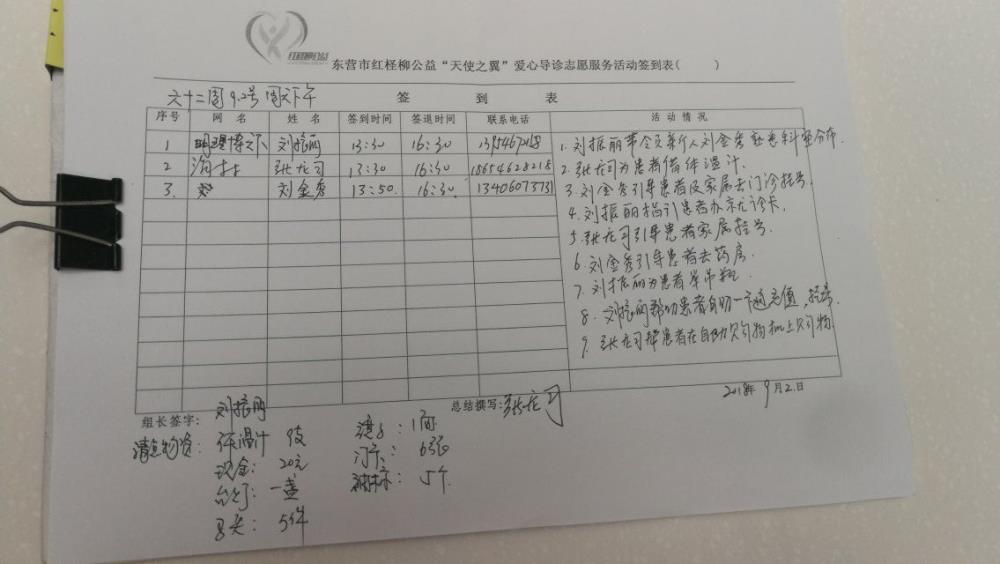 红柽柳公益
东营市红柽柳公益“天使之翼”爱心导诊志愿服务活动签到表( )
六十二周 9.2号 周天下午
签 到 表
序号 网 名 姓 名 签到时间 签退时间 联系电话 活 动 情 况
1 刘振丽 13:30 16:30
2 张龙司 13:30 16:30 18654628218
3. 刘金秀 13:50. 16:30 13406073731
1. 刘振丽带会员新人刘金秀熟悉科室分布.
2. 张龙司为患者借体温计.
3. 刘金秀引导患者及家属去门诊挂号.
4. 刘振丽指引患者办就诊卡.
5. 张龙司引导患者家属挂号.
6. 刘金秀引导患者去药房.
7. 刘振丽为患者举吊瓶
8. 刘振丽帮助患者自助一卡通充值,挂号.
9. 张龙司帮患者在自助购物机上购物.
2018年9月2.日
组长签字: 刘振丽
总结撰写: 张龙司
清点物资: 体温计 9支
现金: 20元
台灯: 一盏
马夹: 5件
镜子: 1面
6张
5个.